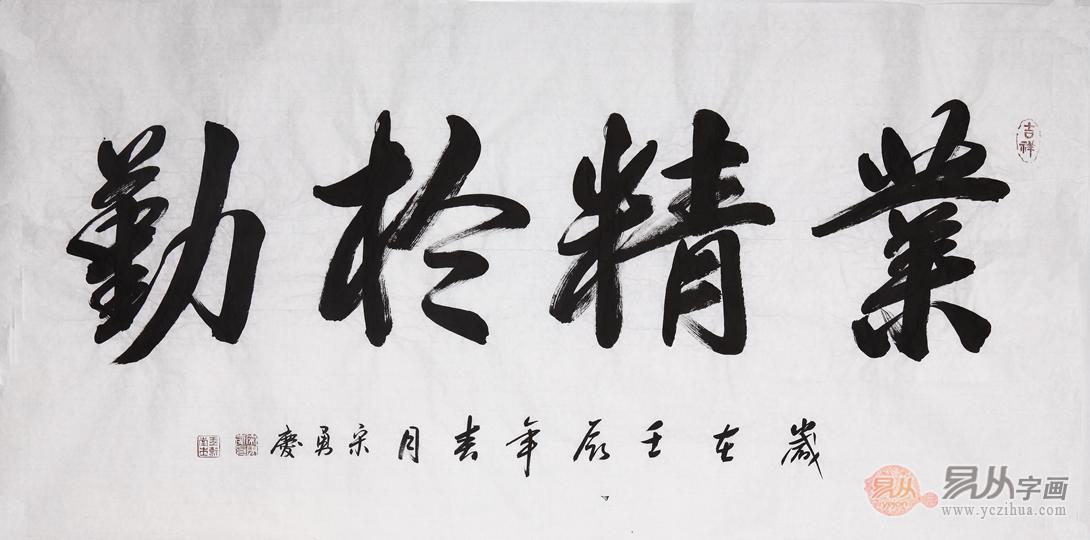 業精於勤
吉祥
歲在壬辰年春月宋勇慶
易从
易从字画
www.yczihua.com